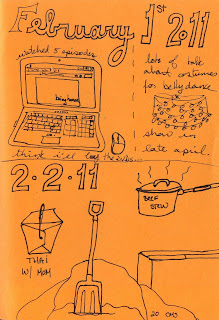 February 1st 2011
watched 5 episodes
being human
lots of talk
about costumes
for bellydance
show in
late april.
think i'll buy the dvds...
2.2.11
BEEF
STEW
THAI
W/ MOM
20 cms